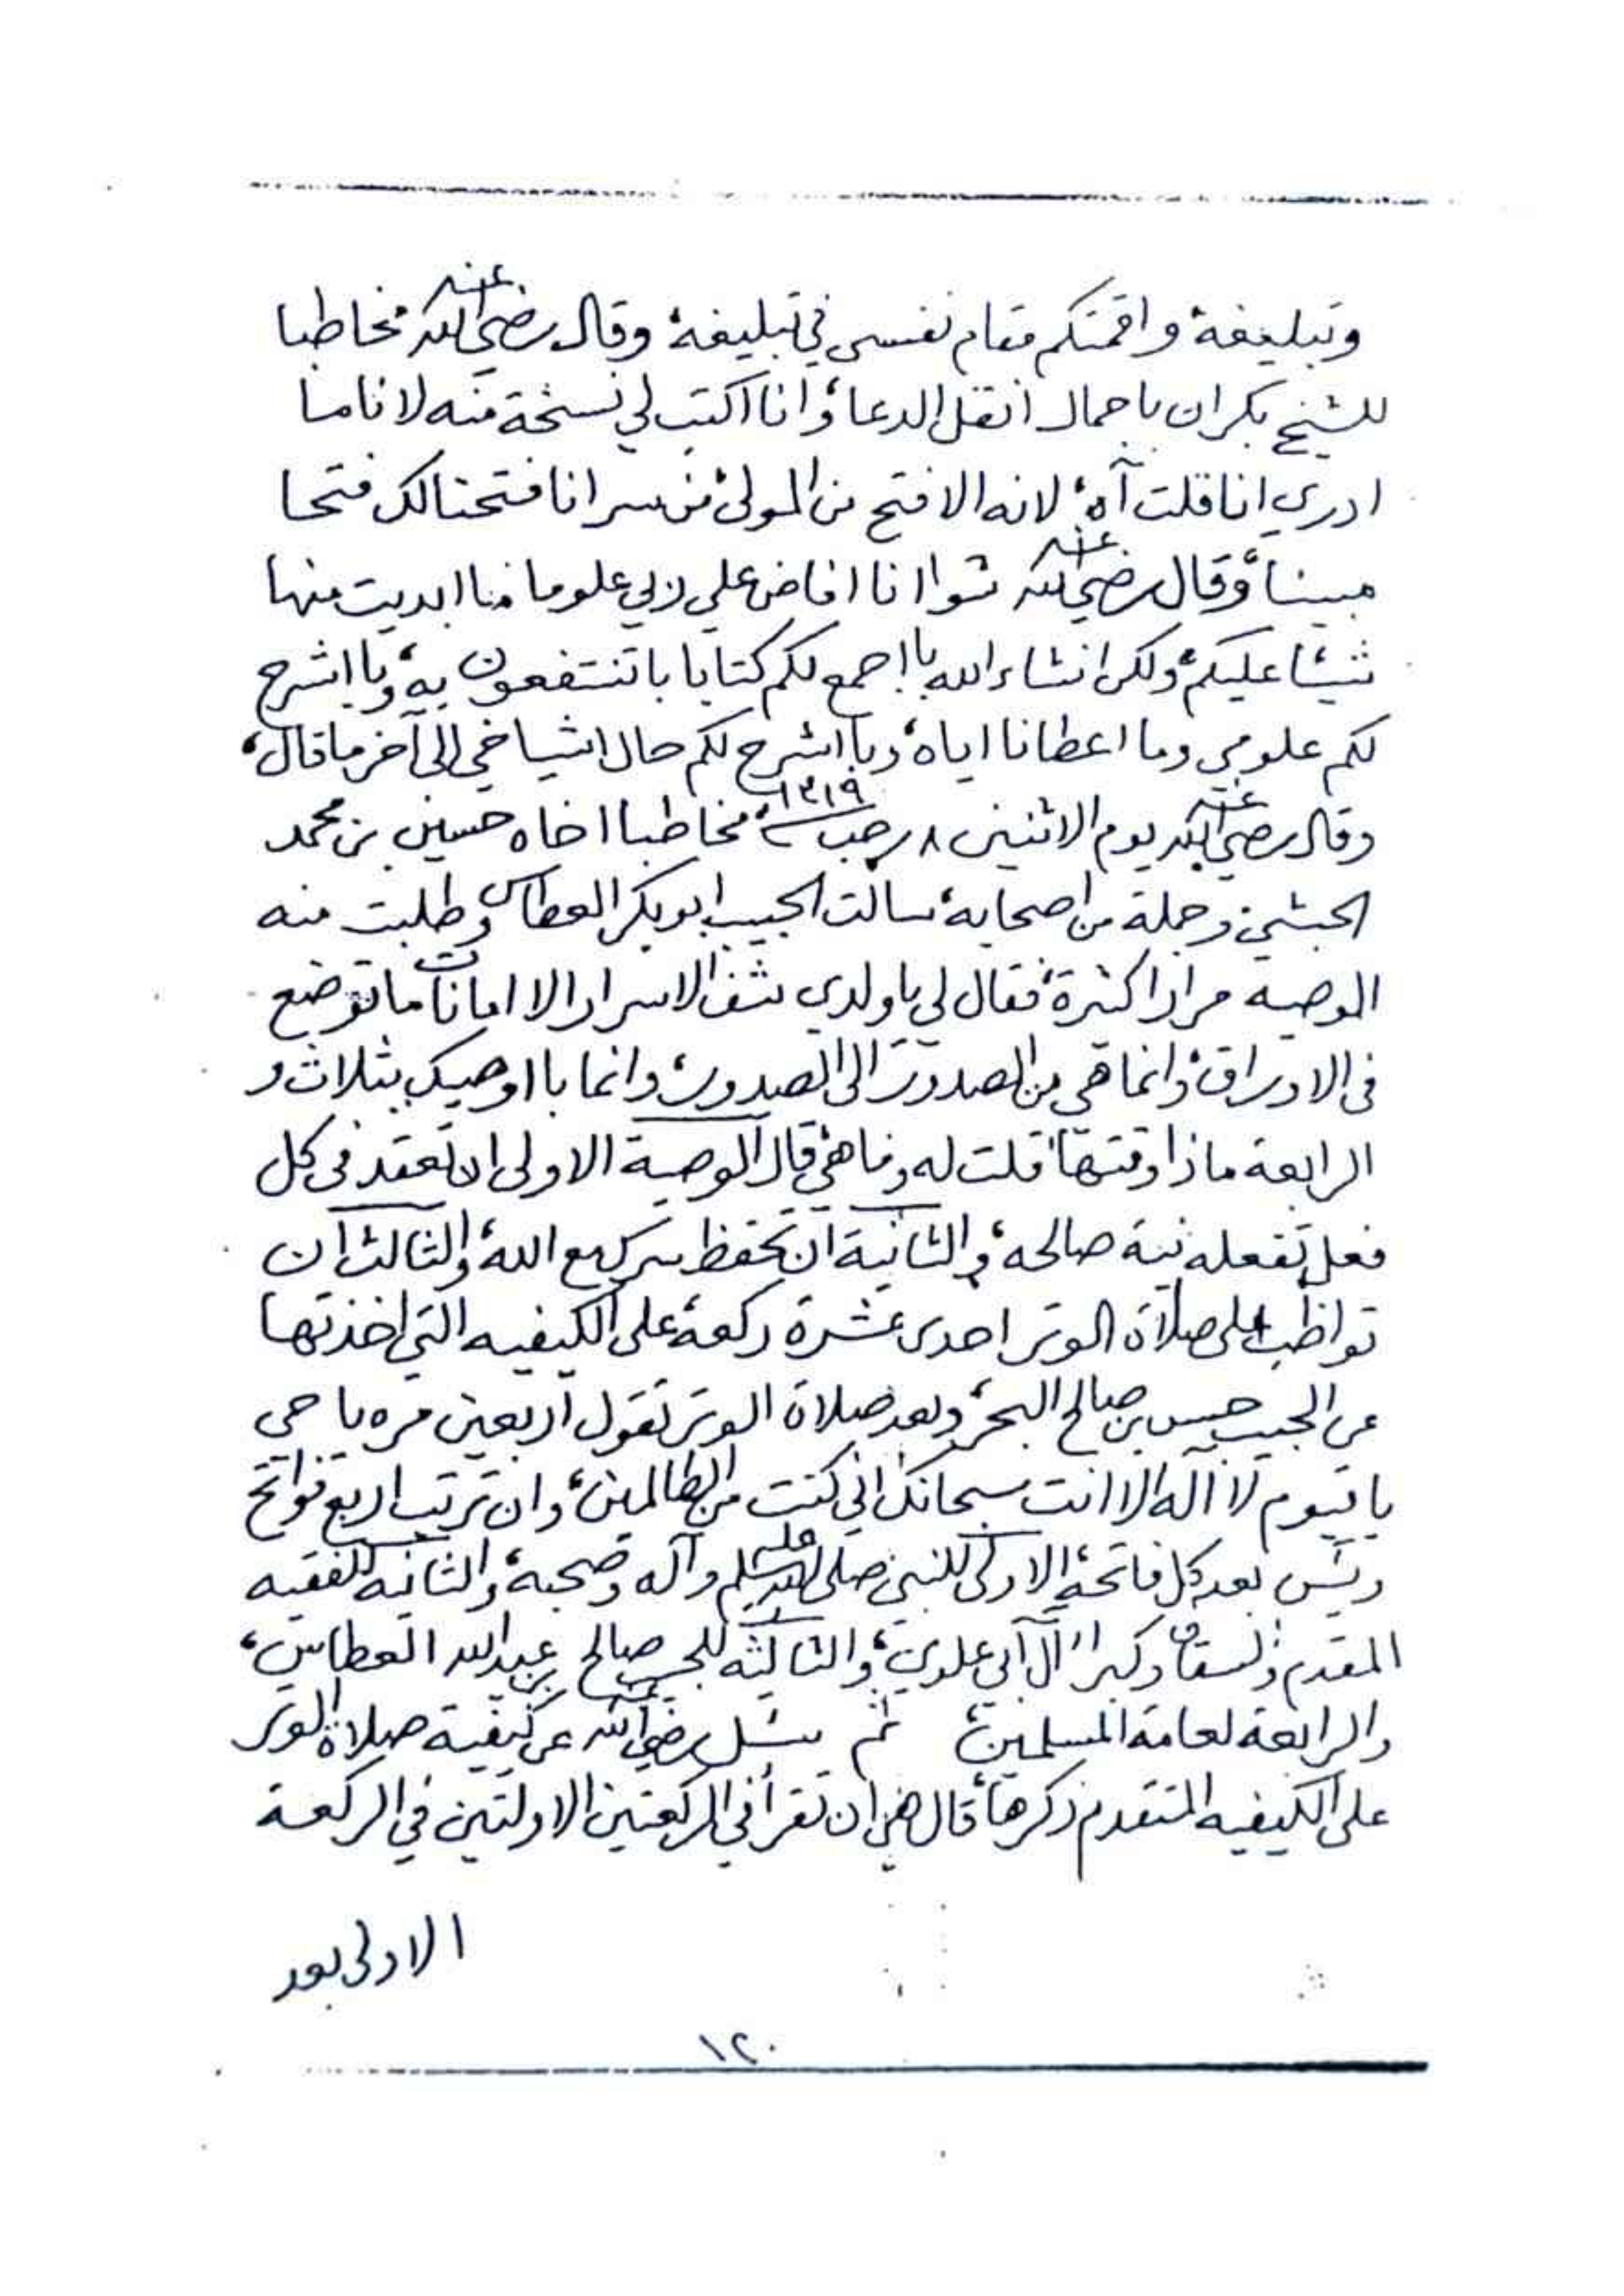 وتبليغه، واقمتكم مقام نفسي في تبليغه، وقال رضي الله عنه مخاطبا
للشيخ بكران باجمال انقل الدعاء، وانا اكتب لي نسخة منه لانا ما
ادري انا قلت آه، لانه الا فتح من المولى، من سر انا فتحنا لك فتحا
مبينا، وقال رضي الله عنه شوا انا افاض علي ربي علوما ما ابديت منها
شيئا عليكم، ولكن انشاء الله با اجمع لكم كتابا با تنتفعون به، وبا اشرح
لكم علومي وما اعطانا اياه، وبا اشرح لكم حال اشياخي الى آخر ما قال،
وقال رضي الله عنه يوم الاثنين ٨ رجب ١٣١٩، مخاطبا اخاه حسين بن محمد
الحبشي وجملة من اصحابه، سالت الحبيب ابو بكر العطاس وطلبت منه
الوصيه مرارا كثيرة، فقال لي يا ولدي شف الاسرار الا امانات ما توضع
في الاوراق، وانما هي من الصدور الى الصدور، وانما با اوصيك بثلاث و
الرابعة ماذا وقتها، قلت له وما هي، قال الوصية الاولى ان تعقد في كل
فعل تفعله نية صالحه، والثانية ان تحفظ سرك مع الله، والثالث ان
تواظب على صلاة الوتر احدى عشرة ركعة، على الكيفيه التي اخذتها
عن الحبيب حسن بن صالح البحر، وبعد صلاة الوتر تقول اربعين مره يا حي
يا قيوم لا اله الا انت سبحانك اني كنت من الظالمين، وان ترتب اربع فواتح
ويس بعد كل فاتحه، الاولى للنبي صلى الله عليه وسلم وآله وصحبه، والثانيه للفقيه
المقدم والسقاف وكبراء آل ابي علوي، والثالثه للحبيب صالح بن عبدالله العطاس،
والرابعة لعامة المسلمين، ثم سئل رضي الله عنه عن كيفية صلاة الوتر
على الكيفيه المتقدم ذكرها، قال هي ان تقرأ في الركعتين الاولتين في الركعة
الاولى بعد
١٢٠